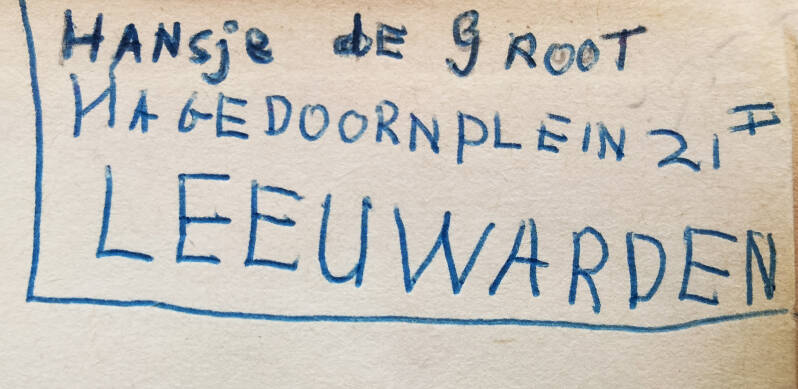 HANSje de GROOT
HAGEDOORNPLEIN 21 II
LEEUWARDEN